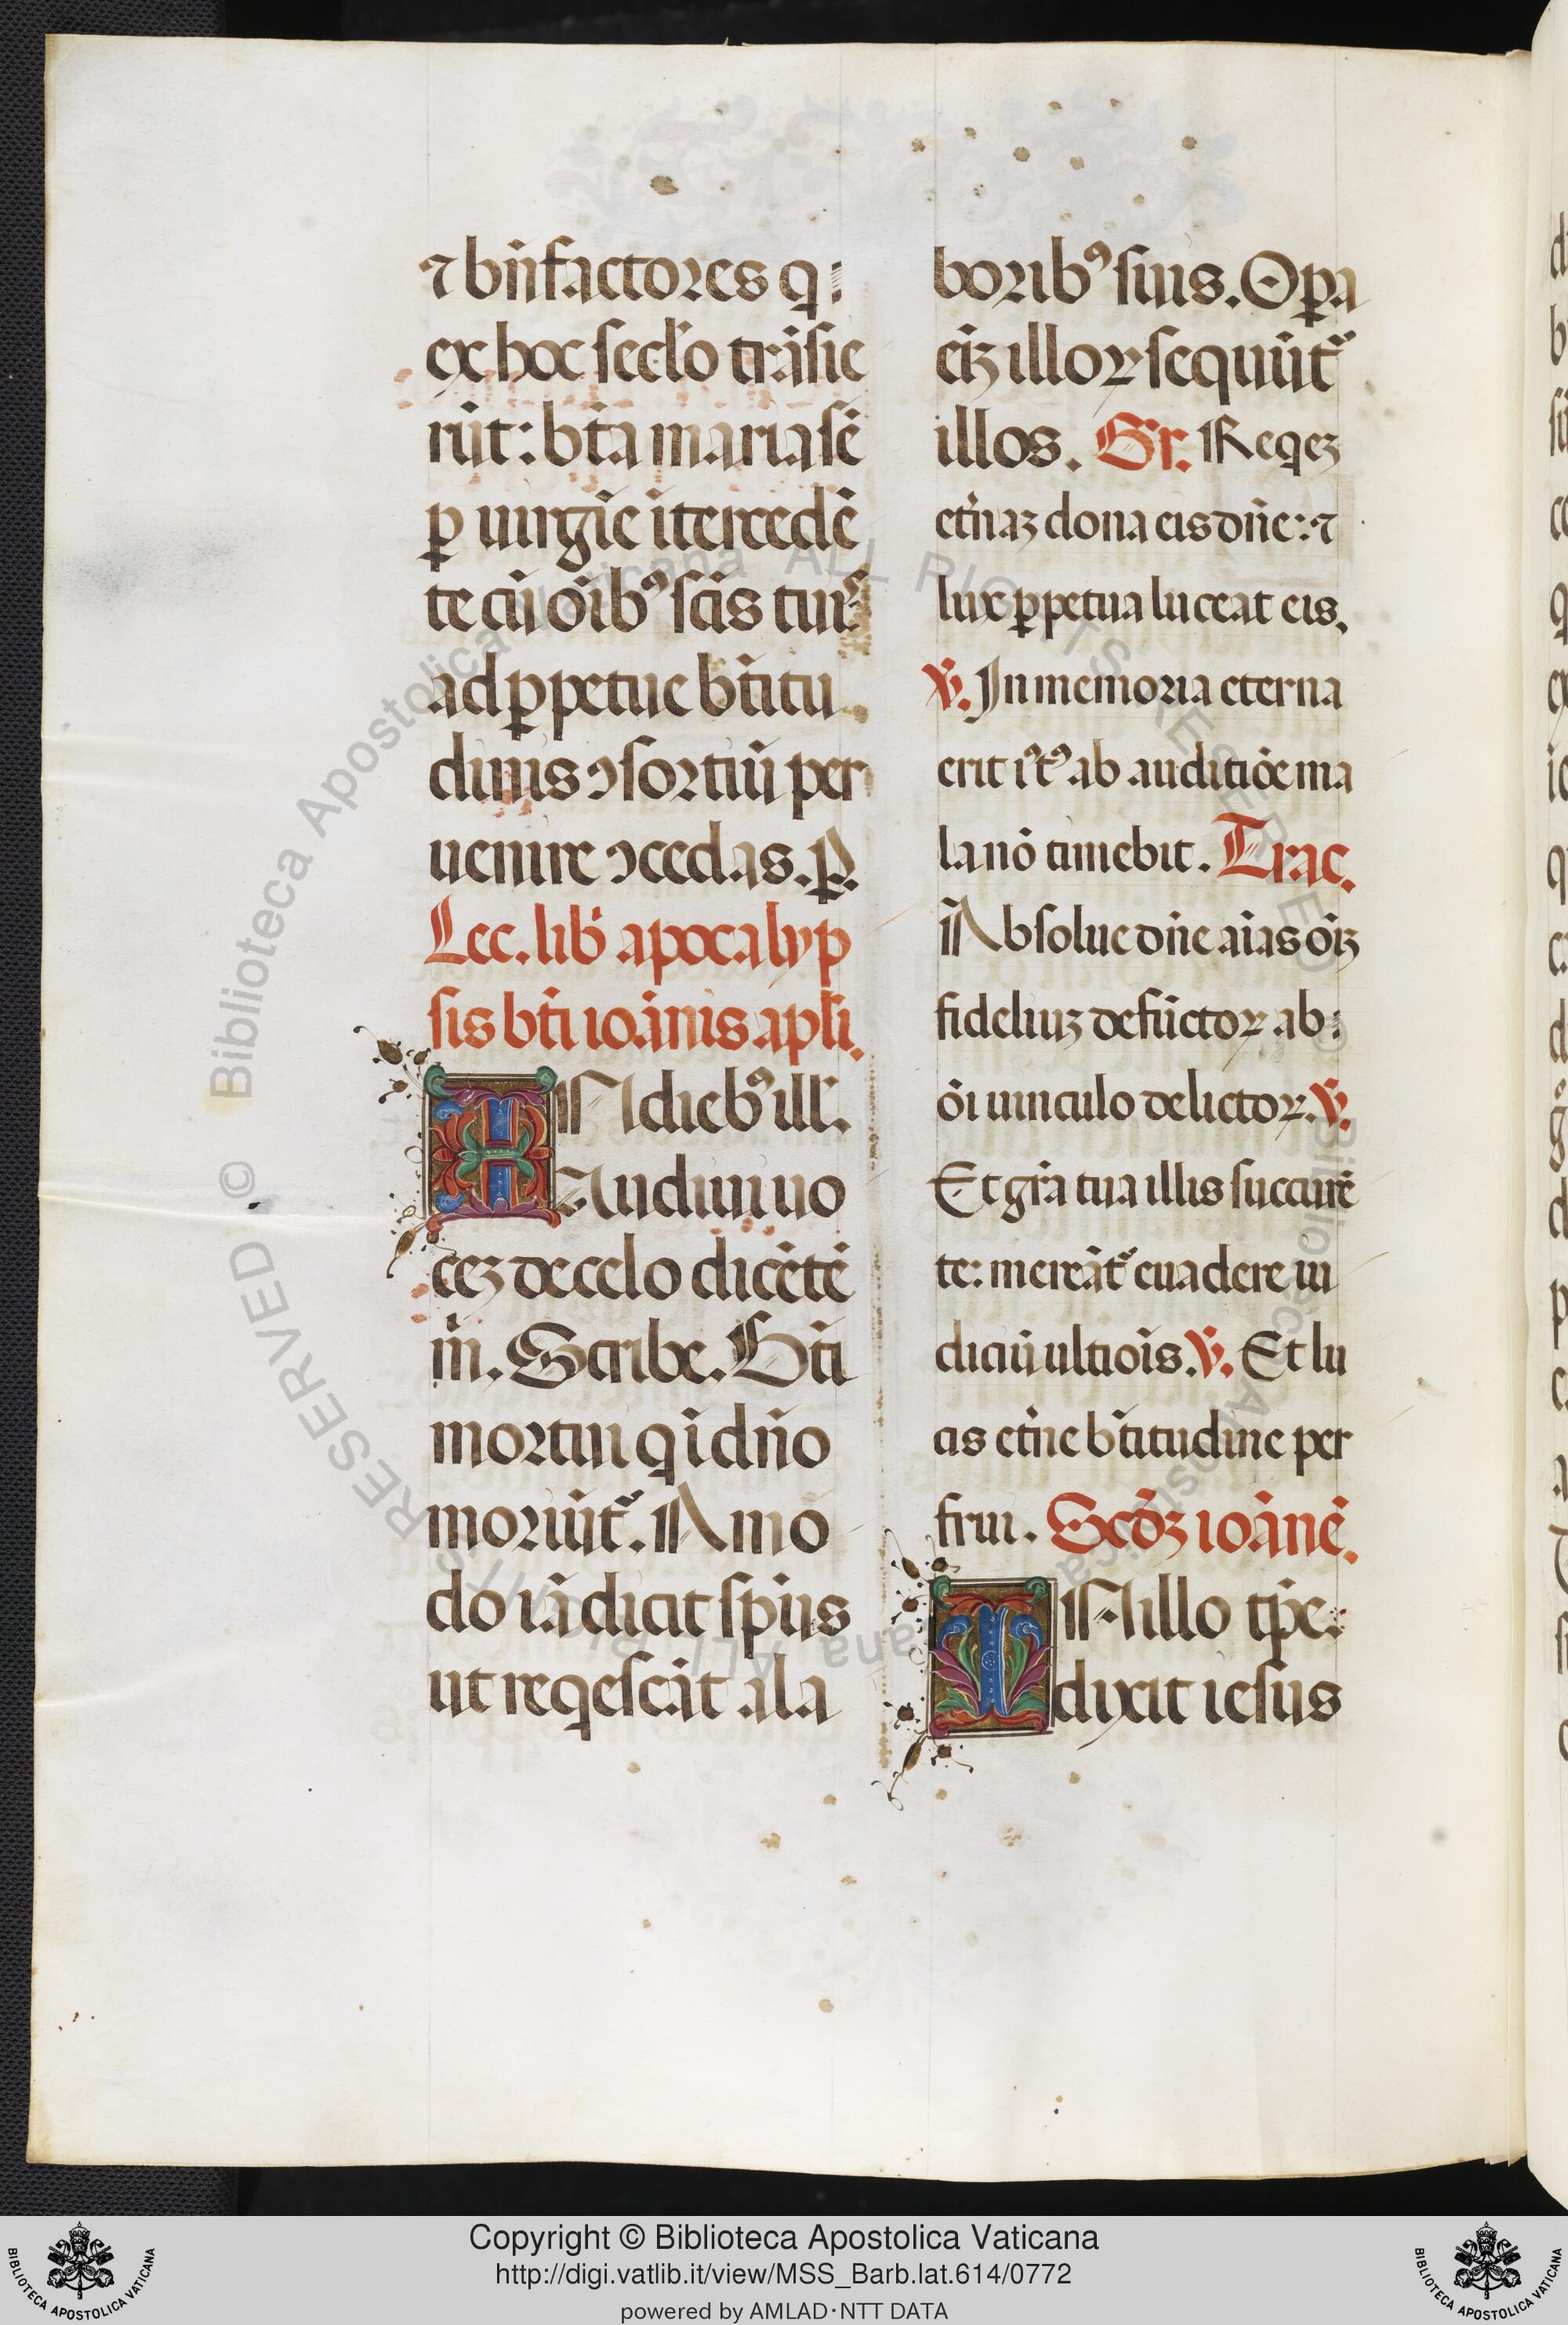 ⁊ bn̄factores q
ex hoc secl'o trāsie
rūt: bt̄a maria sē
ꝑ uirgīe ītercedē
te cū oīb⁹ scīs tuis
ad ꝑpetue bt̄itu
dinis ↄsortiū per
uenire ↄcedas. P.
Lec. lib̄ apocalyp
sis bt̄i ioānis apl̄i.
IN dieb⁹ ill'.
Audiui uo
ceꝫ de celo dicētē
m̄. Scribe. Bt̄i
mortui q ī dn̄o
moriūt̄. Amo
do iā dicit sp̄us
ut reqescāt a la
borib⁹ suis. Oꝑa
eīꝫ illoꝝ sequūt̄
illos. Gr. Reqeꝫ
et̄naꝫ dona eis dn̄e: ⁊
lux ꝑpetua luceat eis.
℣. In memoria eterna
erit iᵗ⁹ ab auditiōe ma
la nō timebit. Trac.
Absolue dn̄e aīas oīꝫ
fideliuꝫ defūctoꝝ ab
ōi uinculo delictoꝝ. ℣.
Et grā tua illis succurrē
te: mereāt̄ euadere iu
diciū ultiōis. ℣. Et lu
cis et̄ne bt̄itudine per
frui. Scd̄ꝫ ioānē.
IN illo tp̄e.
dixit iesus
© Biblioteca Apostolica Vaticana ALL RIGHTS RESERVED
Copyright © Biblioteca Apostolica Vaticana
http://digi.vatlib.it/view/MSS_Barb.lat.614/0772
powered by AMLAD·NTT DATA
BIBLIOTECA APOSTOLICA VATICANA
BIBLIOTECA APOSTOLICA VATICANA